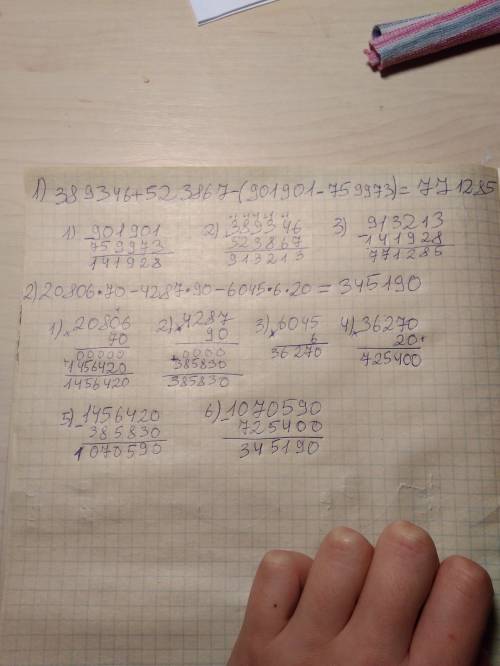 1) 389346+523867-(901901-759973)=771285
1) -901901 2) 389346 3) 913213
759973 523867 -141928
141928 913213 771285
2) 20806·70-4287·90-6045·6·20=345190
1) ×20806 2) ×4287 3) ×6045 4) ×36270
70 90 6 20
00000 +0000 36270 725400
1456420 385830
1456420 385830
5) -1456420 6) -1070590
385830 725400
1070590 345190